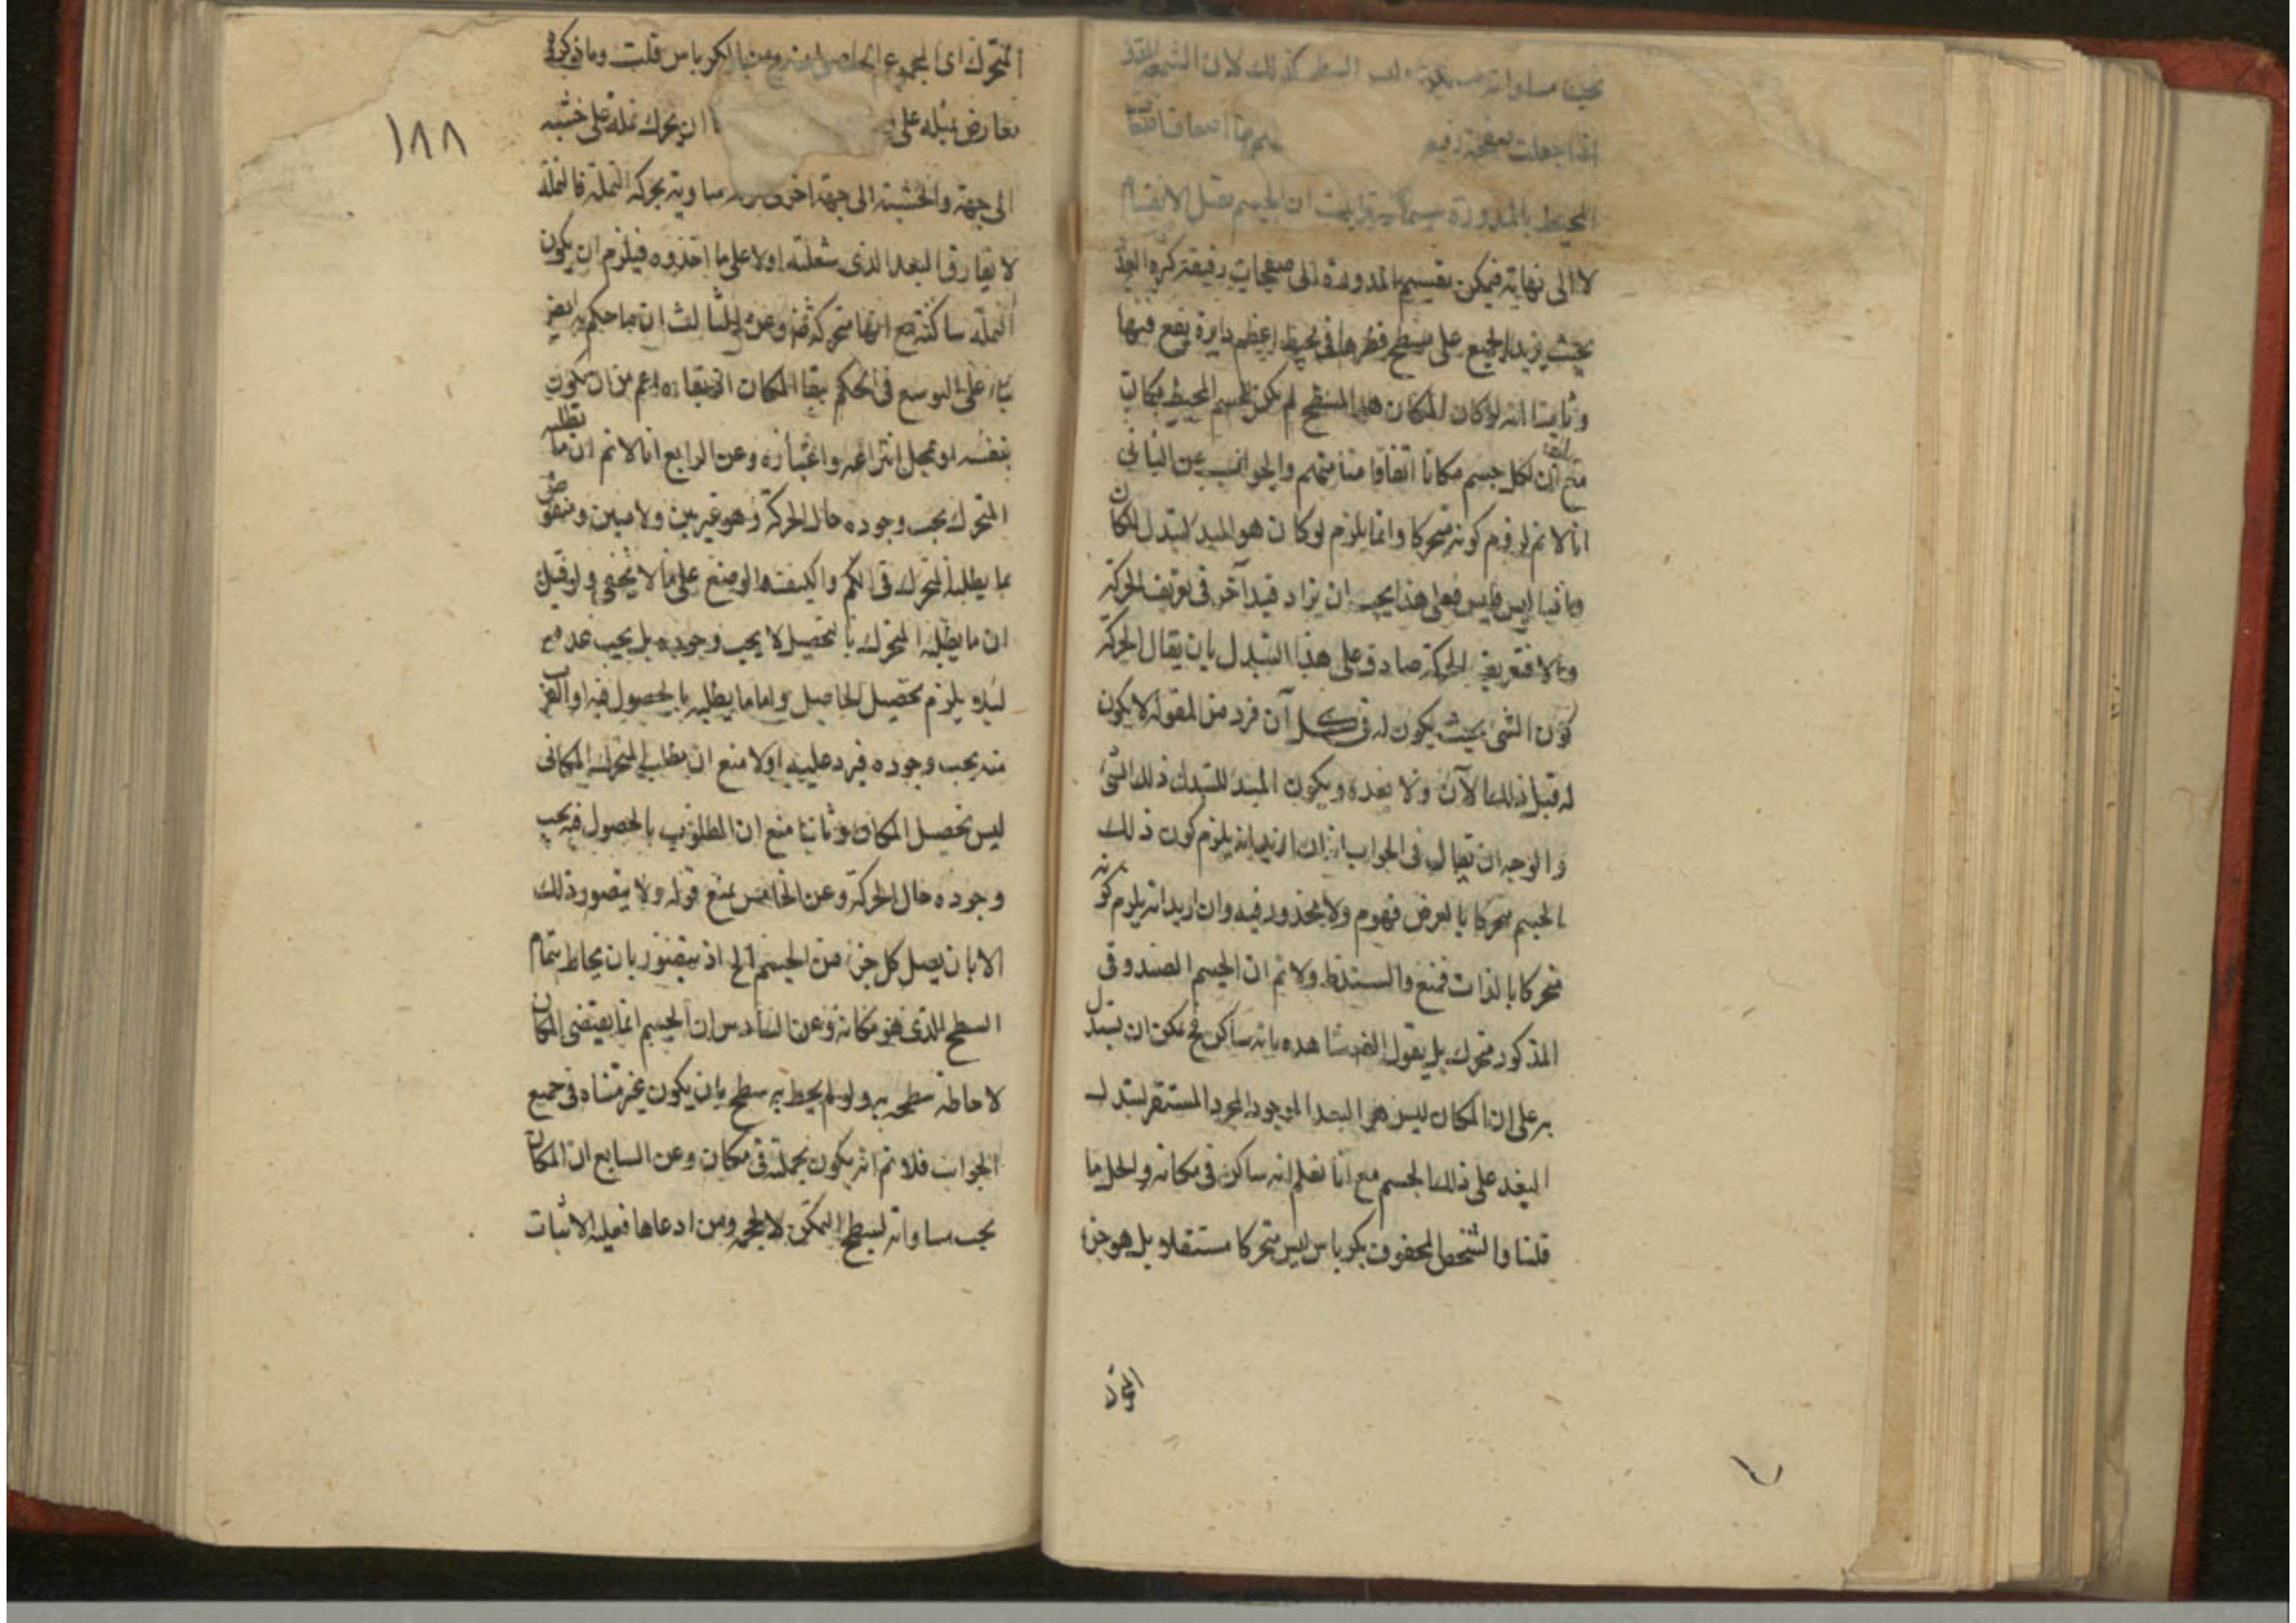 يجب مساواته لسطح كذلك لان الشمعة
اذا جعلت صفحة رقيقة
المحيط بالمدورة ان الجسم يقبل الانقسام
لا الى نهاية فيمكن تقسيم المدورة الى صفحات رقيقة كثيرة العدد
بحيث يزيد الجميع على مسطح قطرها في محيط اعظم دايرة يقع فيها
وثامنا انه لو كان المكان هو السطح لم يكن للجسم المحيط مكان
مع ان لكل جسم مكانا اتفاقا منا ومنهم والجواب عن الثاني
انا لا نم لزوم كونه متحركا وانما يلزم لو كان هو المبدا لتبدل المكان
وما نحن فيه ليس فعلى هذا يجب ان يزاد قيد آخر في تعريف الحركة
والا فتعريف الحركة صادق على هذا التبدل بان يقال الحركة
كون الشئ بحيث يكون له في كل آن فرد من المقولة لا يكون
له قبل ذلك الآن ولا بعده ويكون المبدا للتبدل ذلك الشئ
والوجه ان يقال في الجواب انه ان اريد انه يلزم كون ذلك
الجسم متحركا بالعرض فهو م ولا محذور فيه وان اريد انه يلزم كونه
متحركا بالذات فمنع والسند ظ ولا نم ان الجسم الصندوقي
المذكور متحرك بل يقول العقل شاهده بانه ساكن فح يمكن ان يستدل
به على ان المكان ليس هو البعد الموجود المجرد المستقر لتبدل
البعد على ذلك الجسم مع انا نعلم انه ساكن في مكانه والحل ما
قلنا والشخص المحفوف بكرباس ليس متحركا مستقلا بل هو جزء
المتحرك
١٨٨
المتحرك اى المجموع الحاصل منه ومن الكرباس قلت وما ذكروه
معارض بمثله على ان يحرك نملة على خشبة
الى جهة والخشبة الى جهة اخرى مساوية بحركة النملة فالنملة
لا يفارق البعد الذى شغلته اولا على ما اخذوه فيلزم ان يكون
النملة ساكنة مع انها متحركة ضرورة وعن الثالث ان ما حكم به
بناء على التوسع في الحكم ببقا المكان ان بقاءه اعم من ان يكون
بنفسه او بمحل انتزاعه واعتباره وعن الرابع انا لا نم ان ما يطلبه
المتحرك يجب وجوده حال الحركة وهو غير بين ولا مبين ومنقوض
بما يطلبه المتحرك في الكم والكيف والوضع على ما لا يخفى ولو قيل
ان ما يطلبه المتحرك بالتحصيل لا يجب وجوده بل يجب عدمه
ليلا يلزم تحصيل الحاصل واما ما يطلبه بالحصول فيه او القرب
منه يجب وجوده فيرد عليه اولا منع ان مطلب المتحرك المكانى
ليس تحصيل المكان وثانيا منع ان المطلوب بالحصول فيه يجب
وجوده حال الحركة وعن الخامس بمنع قوله ولا يتصور ذلك
الا بان يصل كل جزء من الجسم الخ اذ يتصور بان يحاط بتمام
السطح الذى هو مكانه وعن السادس ان الجسم انما يقتضى المكان
لاحاطة سطح به ولو لم يحط به سطح بان يكون غير متناه في جميع
الجوانب فلا نم انه يكون بجملته في مكان وعن السابع ان المكان
يجب مساواته لسطح المتمكن لا لحجمه ومن ادعاها فعليه الاثبات